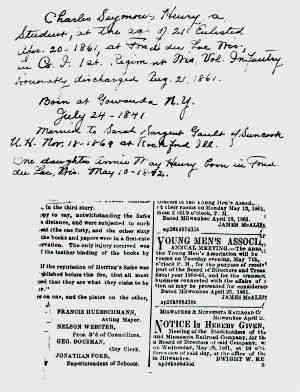 Charles Seymour Henry a
Student, at the age of 21 Enlisted
Apr. 20-1861, at Fond du Lac Wis,
in Co. I 1st. Regim. nt Wis. Vol. Infantry
Honorably discharged Aug. 21. 1861.
Born at Gowanda N.Y.
July 24-1841
Married to Sarah Sargent Gault of Suncook
N.H. Nov. 18-1869 at Rockford Ill.
One daughter Annie May Henry born in Fond
du Lac, Wis. May 10-1872.
in the third story.
opy to say, notwithstanding the
a distance, and were subject to such
and the case forty, and the other sixty
the books and papers were in a first-rate
The only injury received was
the leather binding of the books by
If the reputation of Herring's Safes was
established before this fire, that all must
that they are what they claim to be
on one, and the plates on the other,
FRANCIS HUEBSCHMANN,
Acting Mayor.
NELSON WEBSTER,
Pres. B'd of Councillors.
GEO. DOCKMAN,
City Clerk.
JONATHAN FORD,
Superintendent of Schools.
their rooms on Monday May 13, 1861,
from 2 till 9 o'clock, P. M.
Dated Milwaukee April 29, 1861.
JAMES McALIS
YOUNG MEN'S ASSOCI
ANNUAL MEETING.—The
the Young Men's Association will be
rooms on Tuesday evening, May 7th,
o'clock P. M., for the purpose of
port of the Board of Directors and Treas
Dated Milwaukee April 29, 1861.
JAMES McALIS
MILWAUKEE & MINNESOTA RAILROAD CO
Milwaukee April
NOTICE IS HEREBY GIVEN,
Meeting of the Stockholders of the
Minnesota Railroad Company, for
a Board of Directors of said company,
on Wednesday, May
noon of said day, at the office of the
in Milwaukee.
DWIGHT W. KE